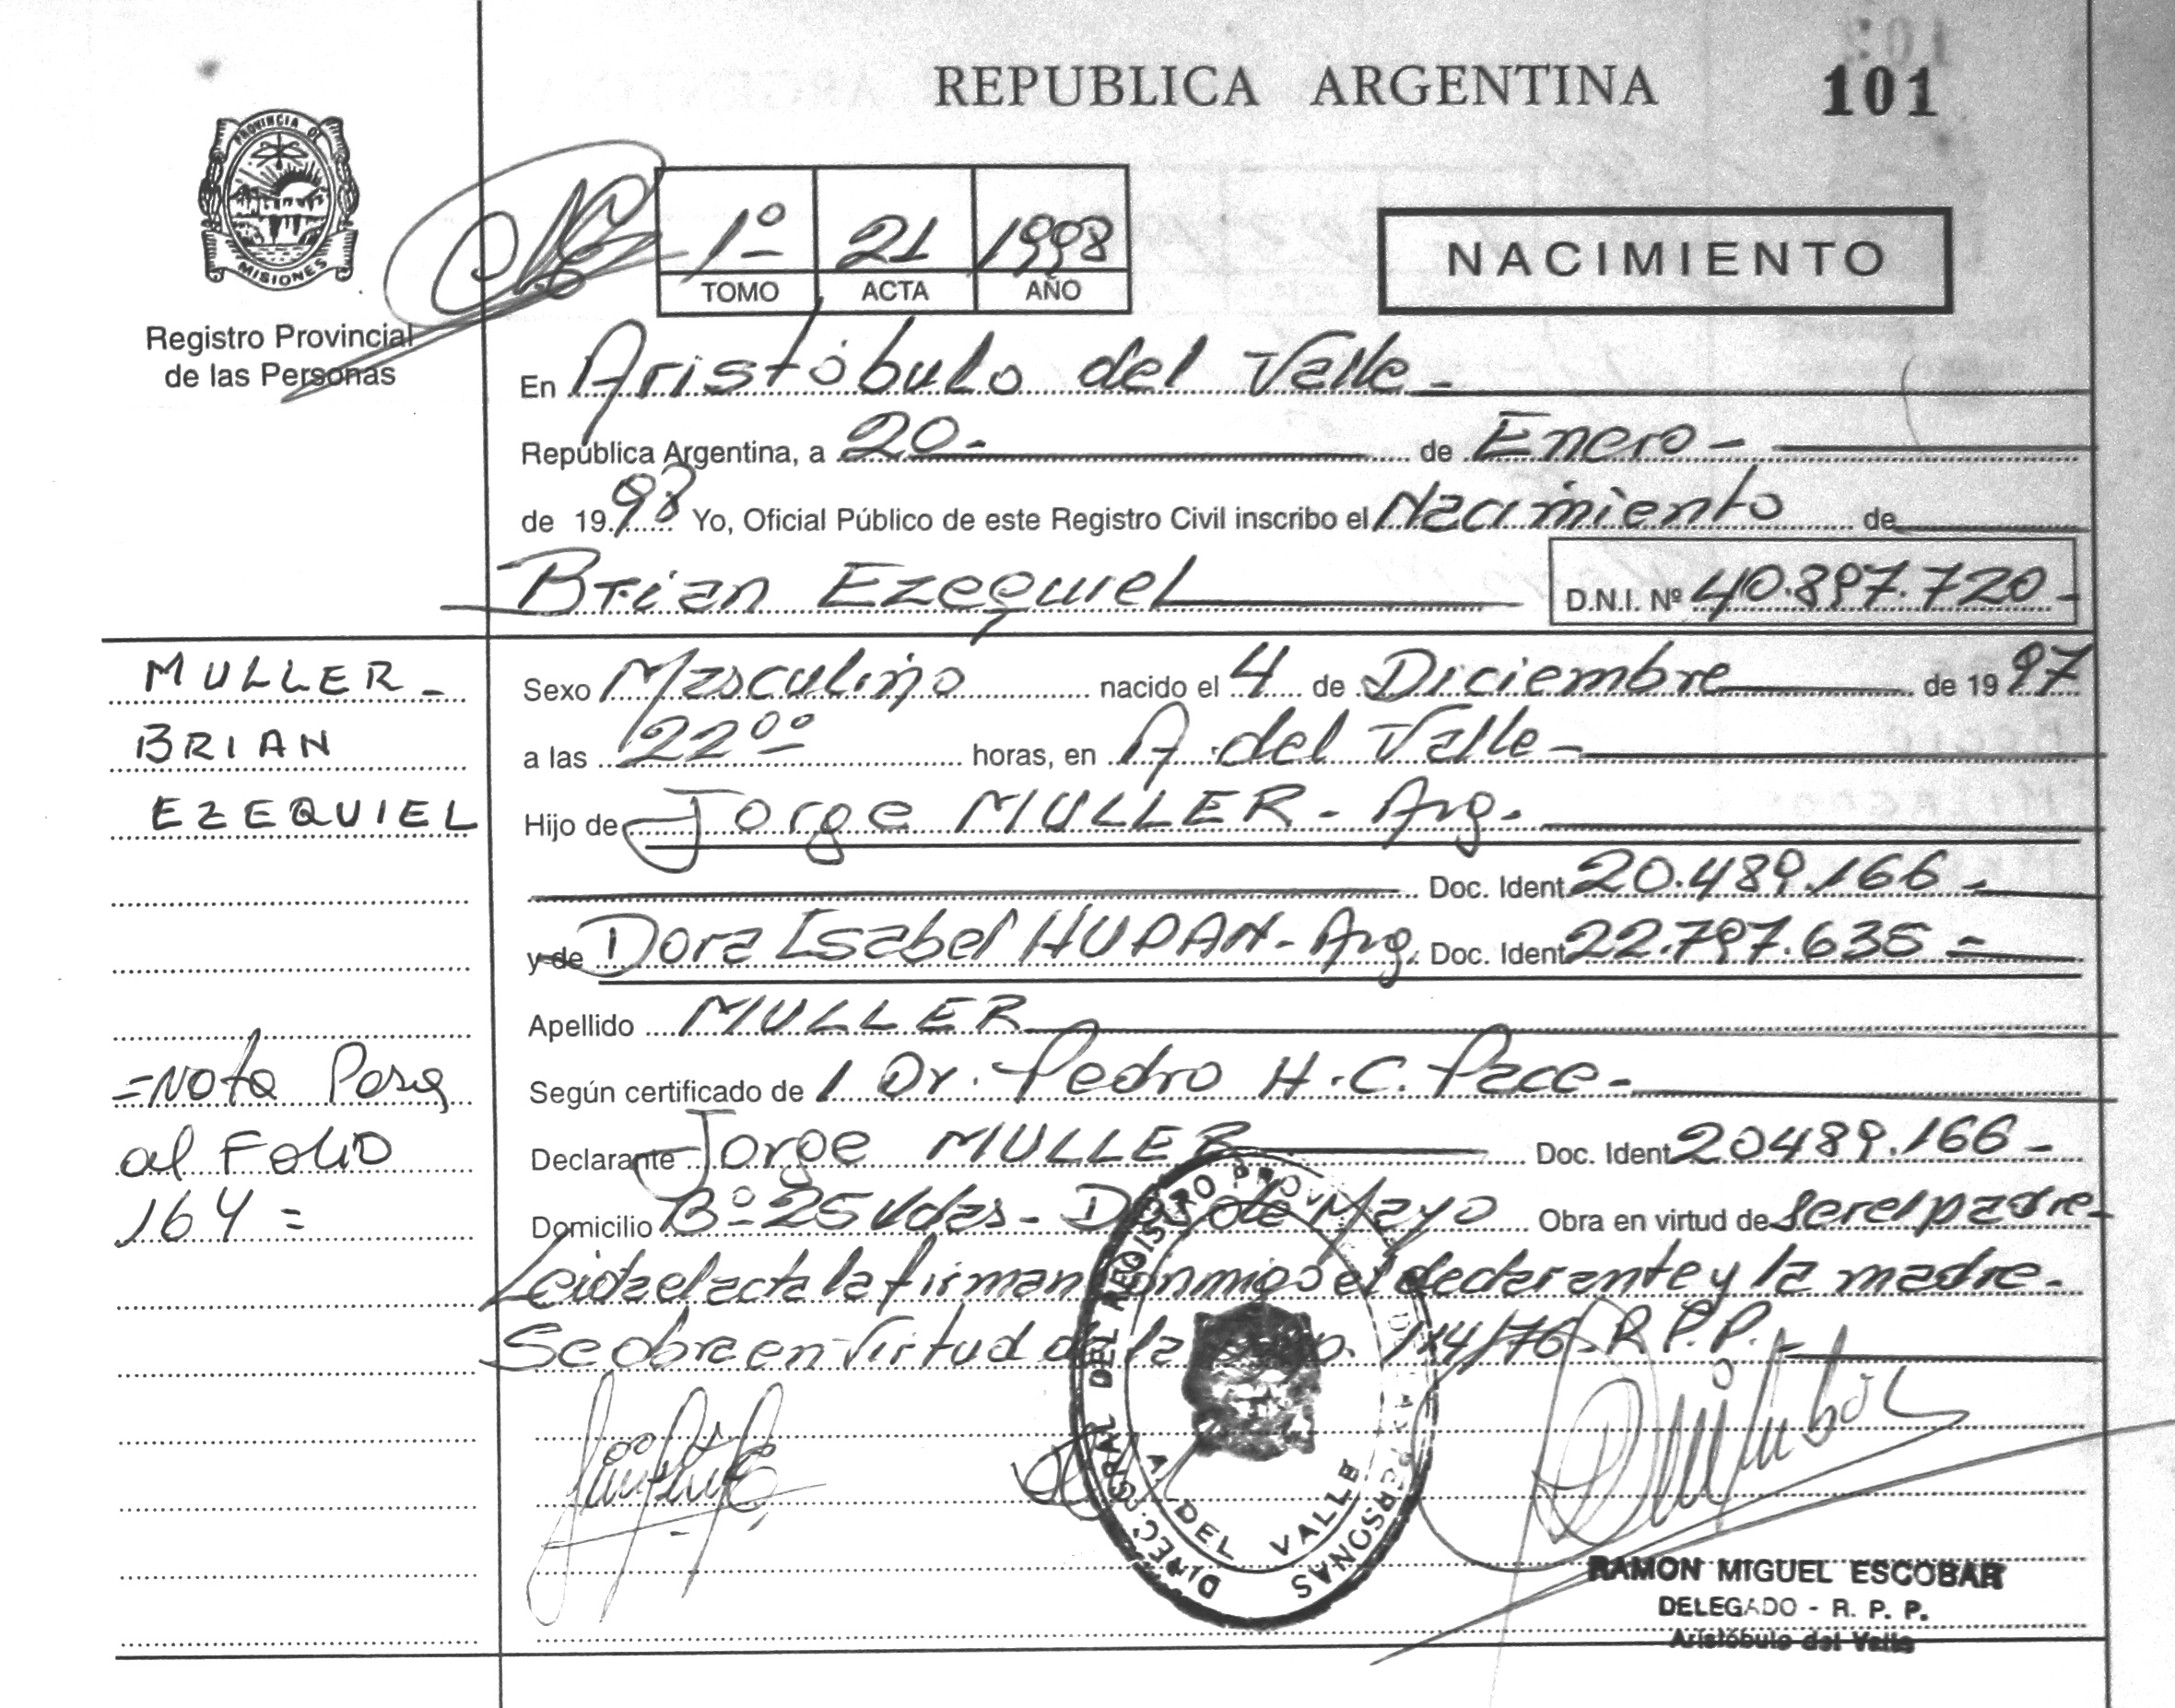 REPUBLICA ARGENTINA
101
PROVINCIA DE
MISIONES
Registro Provincial
de las Personas
1º 21 1998
TOMO ACTA AÑO
NACIMIENTO
En Aristóbulo del Valle -
República Argentina, a 20 - de Enero -
de 1998 Yo, Oficial Público de este Registro Civil inscribo el Nacimiento de
Brian Ezequiel D.N.I. Nº 40.897.720 -
MULLER -
BRIAN
EZEQUIEL
=Nota Pasa
al Folio
164 =
Sexo Masculino nacido el 4 de Diciembre de 1997
a las 22⁰⁰ horas, en A. del Valle -
Hijo de Jorge MULLER - Arg.
Doc. Ident 20.489.166 -
y de Dora Isabel HUPAN - Arg. Doc. Ident 22.797.635 -
Apellido MULLER
Según certificado de / Dr. Pedro H. C. Pace -
Declarante Jorge MULLER Doc. Ident 20489.166 -
Domicilio Bº 25 Vdas - Dos de Mayo Obra en virtud de ser el padre -
Leida el acta la firman conmigo el declarante y la madre.
Se obra en virtud de la 114/76 R.P.P. -
DIREC. GRAL DEL REGISTRO PROV. PERSONAS
A DEL VALLE
RAMON MIGUEL ESCOBAR
DELEGADO - R. P. P.
Aristóbulo del Valle